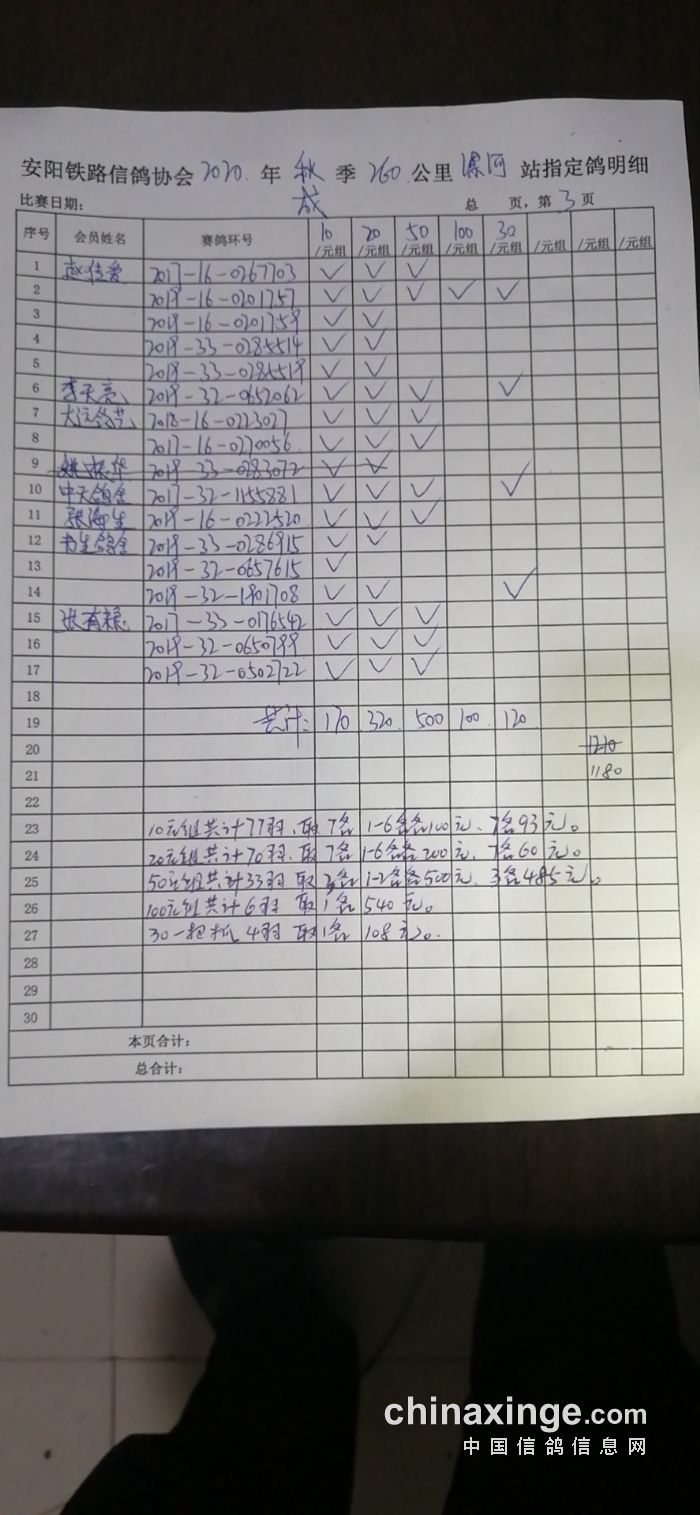 安阳铁路信鸽协会2020年秋季260公里漯河站指定鸽明细
比赛日期: 成 总 页,第3页
序号 会员姓名 赛鸽环号 10/元组 20/元组 50/元组 100/元组 30/元组 /元组 /元组 /元组
1 赵传爱 2017-16-0267703 ✓ ✓ ✓
2 2019-16-0201757 ✓ ✓ ✓ ✓ ✓
3 2019-16-0201759 ✓ ✓
4 2019-33-0285514 ✓ ✓
5 2019-33-0285519 ✓ ✓
6 李天亮 2019-32-0652062 ✓ ✓ ✓ ✓
7 2018-16-0223027 ✓ ✓ ✓
8 2017-16-0270056 ✓ ✓ ✓
9 姚振华 2019-33-0283072 ✓ ✓
10 中天鸽舍 2017-32-1155881 ✓ ✓ ✓ ✓
11 张海生 2019-16-0222520 ✓ ✓ ✓
12 书生鸽舍 2019-33-0286915 ✓ ✓
13 2019-32-0657615 ✓
14 2019-32-1801708 ✓ ✓ ✓
15 张有粮 2017-33-0176542 ✓ ✓ ✓
16 2019-32-0650799 ✓ ✓ ✓
17 2019-32-0502722 ✓ ✓ ✓
18
19 共计: 170 320 500 100 120
20 1210
21 1180
22
23 10元组共计77羽.取7名 1-6名各100元、7名93元。
24 20元组共计70羽.取7名 1-6名各200元、7名60元。
25 50元组共计33羽 取3名 1-2名各500元、3名485元。
26 100元组共计6羽 取1名 540元。
27 30一把抓4羽 取1名 108元。
28
29
30
本页合计:
总合计:
chinaxinge.com
中国信鸽信息网